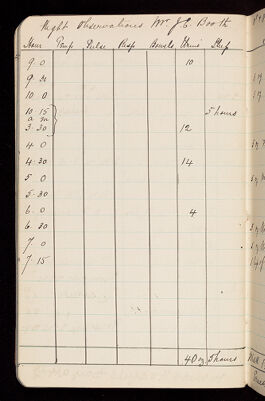 Night Observations Mr J.C. Booth
Hour Temp Pulse Resp Bowels Urine Sleep
9 0 10
9 30
10 0
10 15 5 hours
a m
3.30 12
4 0
4 30 14
5 0
5.30
6.0 4
6 30
7 0
7 15
40 oz 5 hours